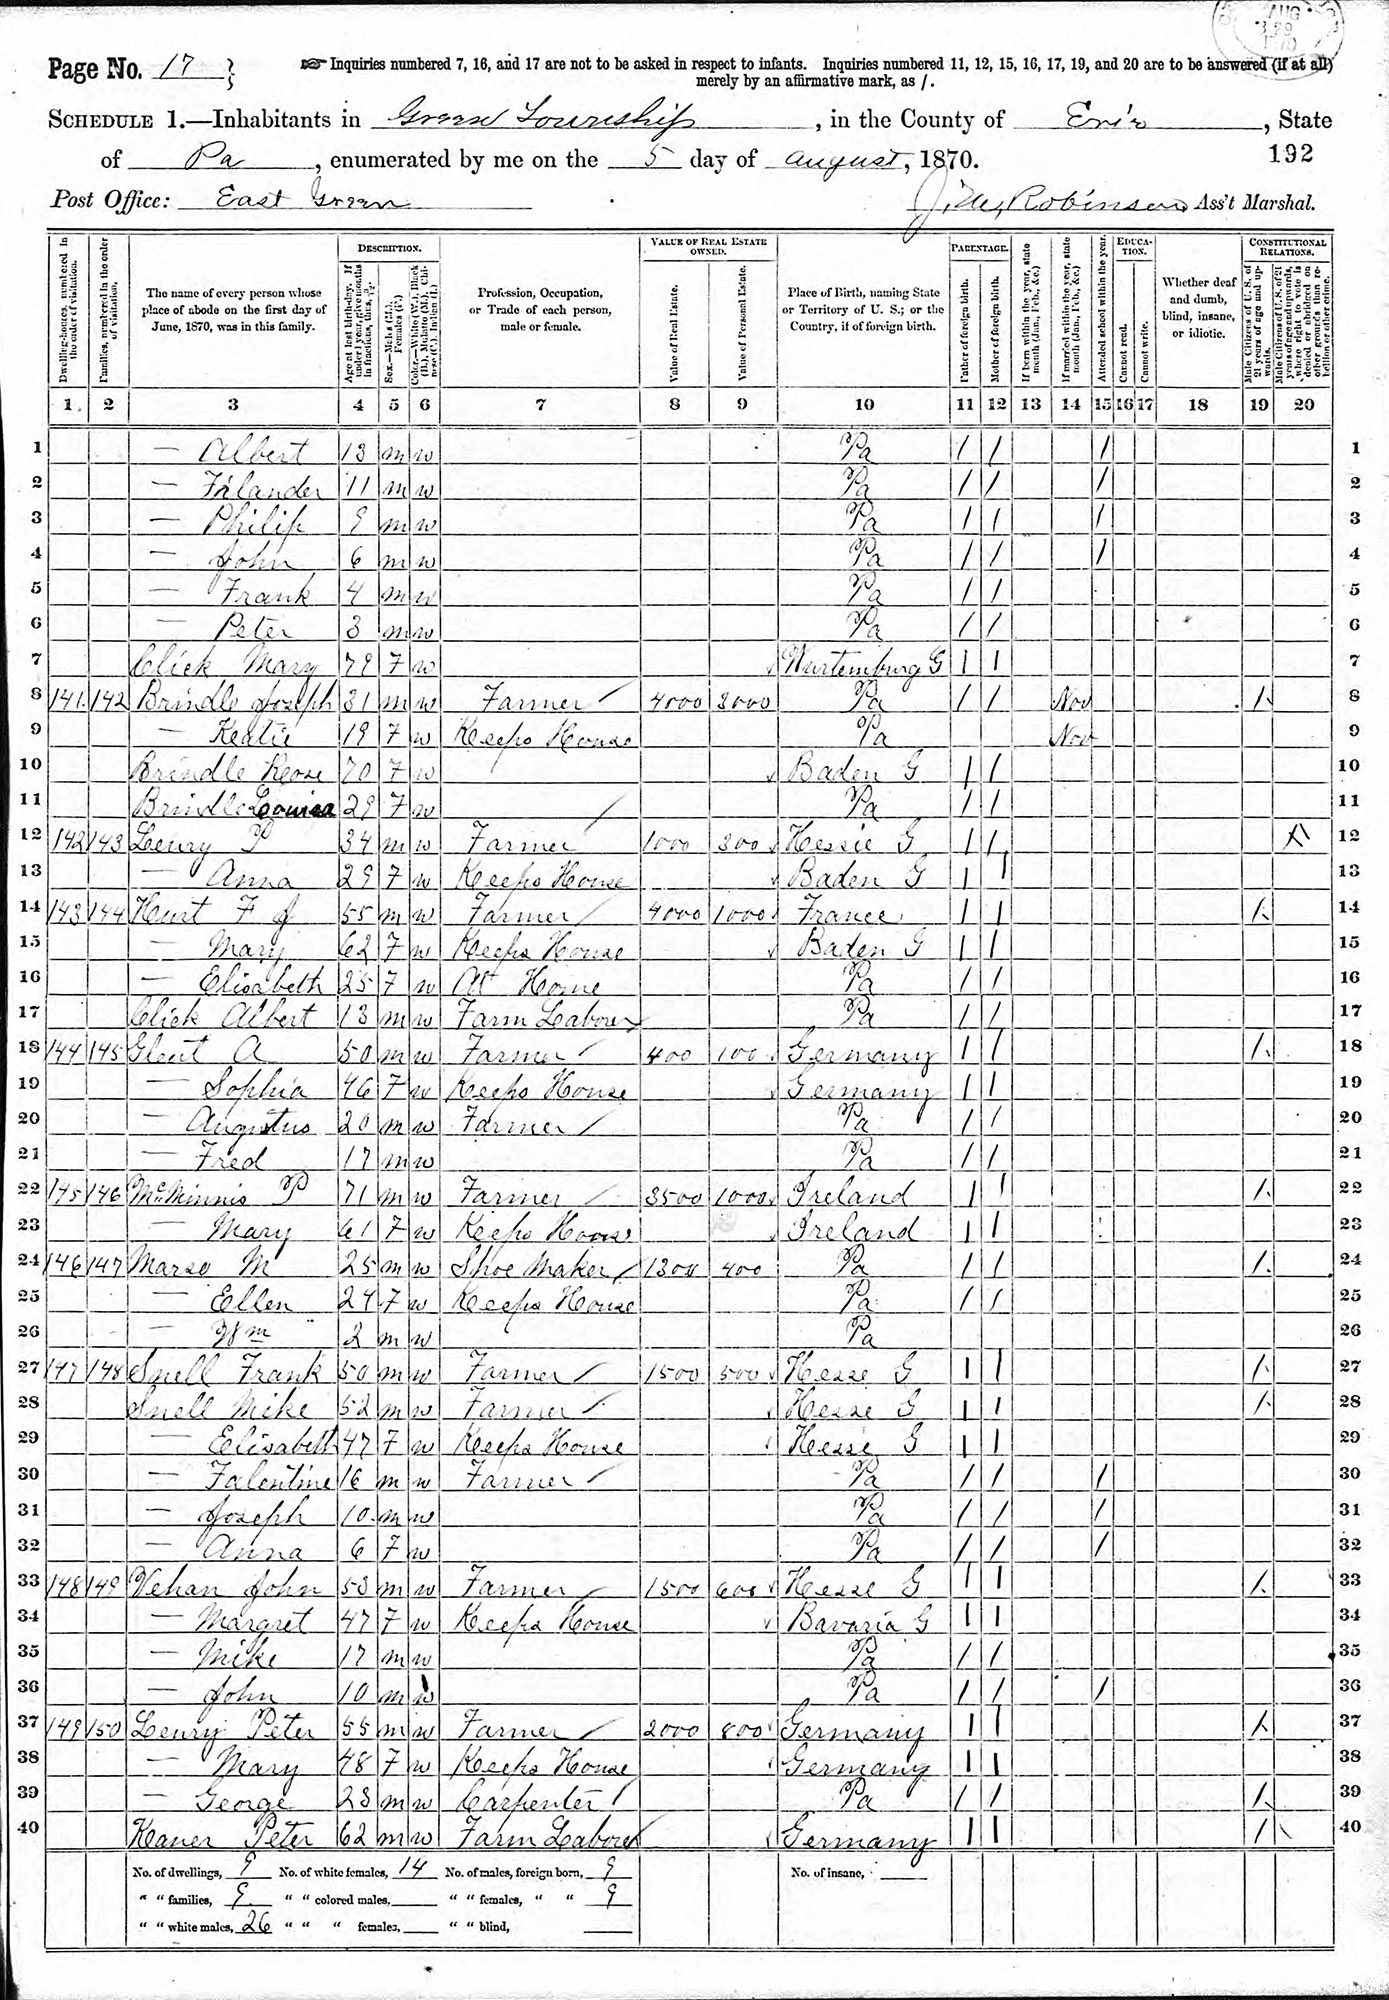 AUG
29
1870
Page No. 17
Inquiries numbered 7, 16, and 17 are not to be asked in respect to infants. Inquiries numbered 11, 12, 15, 16, 17, 19, and 20 are to be answered (if at all)
merely by an affirmative mark, as /.
SCHEDULE 1.—Inhabitants in Green Township, in the County of Erie, State
of Pa, enumerated by me on the 5 day of August, 1870. 192
Post Office: East Green Robinson Ass't Marshal.
Dwelling-houses, numbered in the order of visitation. Families, numbered in the order of visitation. The name of every person whose place of abode on the first day of June, 1870, was in this family. DESCRIPTION. Age at last birth-day. If under 1 year, give months in fractions, thus, 3/12. Sex.—Males (M.), Females (F.) Color.—White (W.), Black (B.), Mulatto (M.), Chinese (C.), Indian (I.) Profession, Occupation, or Trade of each person, male or female. VALUE OF REAL ESTATE OWNED. Value of Real Estate. Value of Personal Estate. Place of Birth, naming State or Territory of U. S.; or the Country, if of foreign birth. PARENTAGE. Father of foreign birth. Mother of foreign birth. If born within the year, state month (Jan., Feb., &c.) If married within the year, state month (Jan., Feb., &c.) Attended school within the year. EDUCATION. Cannot read. Cannot write. Whether deaf and dumb, blind, insane, or idiotic. CONSTITUTIONAL RELATIONS. Male Citizens of U. S. of 21 years of age and upwards. Male Citizens of U. S. of 21 years of age and upwards, whose right to vote is denied or abridged on other grounds than rebellion or other crime.
1 2 3 4 5 6 7 8 9 10 11 12 13 14 15 16 17 18 19 20
1 — Albert 13 m w Pa / / / 1
2 — Filander 11 m w Pa / / / 2
3 — Philip 9 m w Pa / / / 3
4 — John 6 m w Pa / / / 4
5 — Frank 4 m w Pa / / 5
6 — Peter 3 m w Pa / / 6
7 Click Mary 79 F w Wurtemburg G / / 7
8 141 142 Brindle Joseph 31 m w Farmer 4000 3000 Pa / / Nov / 8
9 — Keatie 19 F w Keeps House Pa Nov 9
10 Brindle Rose 70 F w Baden G / / 10
11 Brindle Louisa 29 F w Pa / / 11
12 142 143 Leury P 34 m w Farmer 1000 300 Hessie G / / 12
13 — Anna 29 F w Keeps House Baden G / / 13
14 143 144 Hurt F J 55 m w Farmer 4000 1000 France / / / 14
15 — Mary 62 F w Keeps House Baden G / / 15
16 — Elisabeth 25 F w At Home Pa / / 16
17 Click Albert 13 m w Farm Labour Pa / / 17
18 144 145 Gleut A 50 m w Farmer 400 100 Germany / / / 18
19 — Sophia 46 F w Keeps House Germany / / 19
20 — Augustus 20 m w Farmer Pa / / 20
21 — Fred 17 m w Pa / / 21
22 145 146 McMinnis P 71 m w Farmer 3500 1000 Ireland / / / 22
23 — Mary 61 F w Keeps House Ireland / / 23
24 146 147 Marso M 25 m w Shoe Maker 1300 400 Pa / / / 24
25 — Ellen 24 F w Keeps House Pa / / 25
26 — Wm 2 m w Pa 26
27 147 148 Snell Frank 50 m w Farmer 1500 500 Hesse G / / / 27
28 Snell Mike 52 m w Farmer Hesse G / / / 28
29 — Elisabeth 47 F w Keeps House Hesse G / / 29
30 — Falentine 16 m w Farmer Pa / / / 30
31 — Joseph 10 m w Pa / / / 31
32 — Anna 6 F w Pa / / / 32
33 148 149 Vehan John 53 m w Farmer 1500 600 Hesse G / / / 33
34 — Margret 47 F w Keeps House Bavaria G / / 34
35 — Mike 17 m w Pa / / 35
36 — John 10 m w Pa / / / 36
37 149 150 Leury Peter 55 m w Farmer 2000 800 Germany / / / 37
38 — Mary 48 F w Keeps House Germany / / 38
39 — George 23 m w Carpenter Pa / / / 39
40 Kaner Peter 62 m w Farm Labour Germany / / / 40
No. of dwellings, 9 No. of white females, 14 No. of males, foreign born, 9 No. of insane,
" " families, 9 " " colored males, " " females, " " 9
" " white males, 26 " " " females, " " blind,